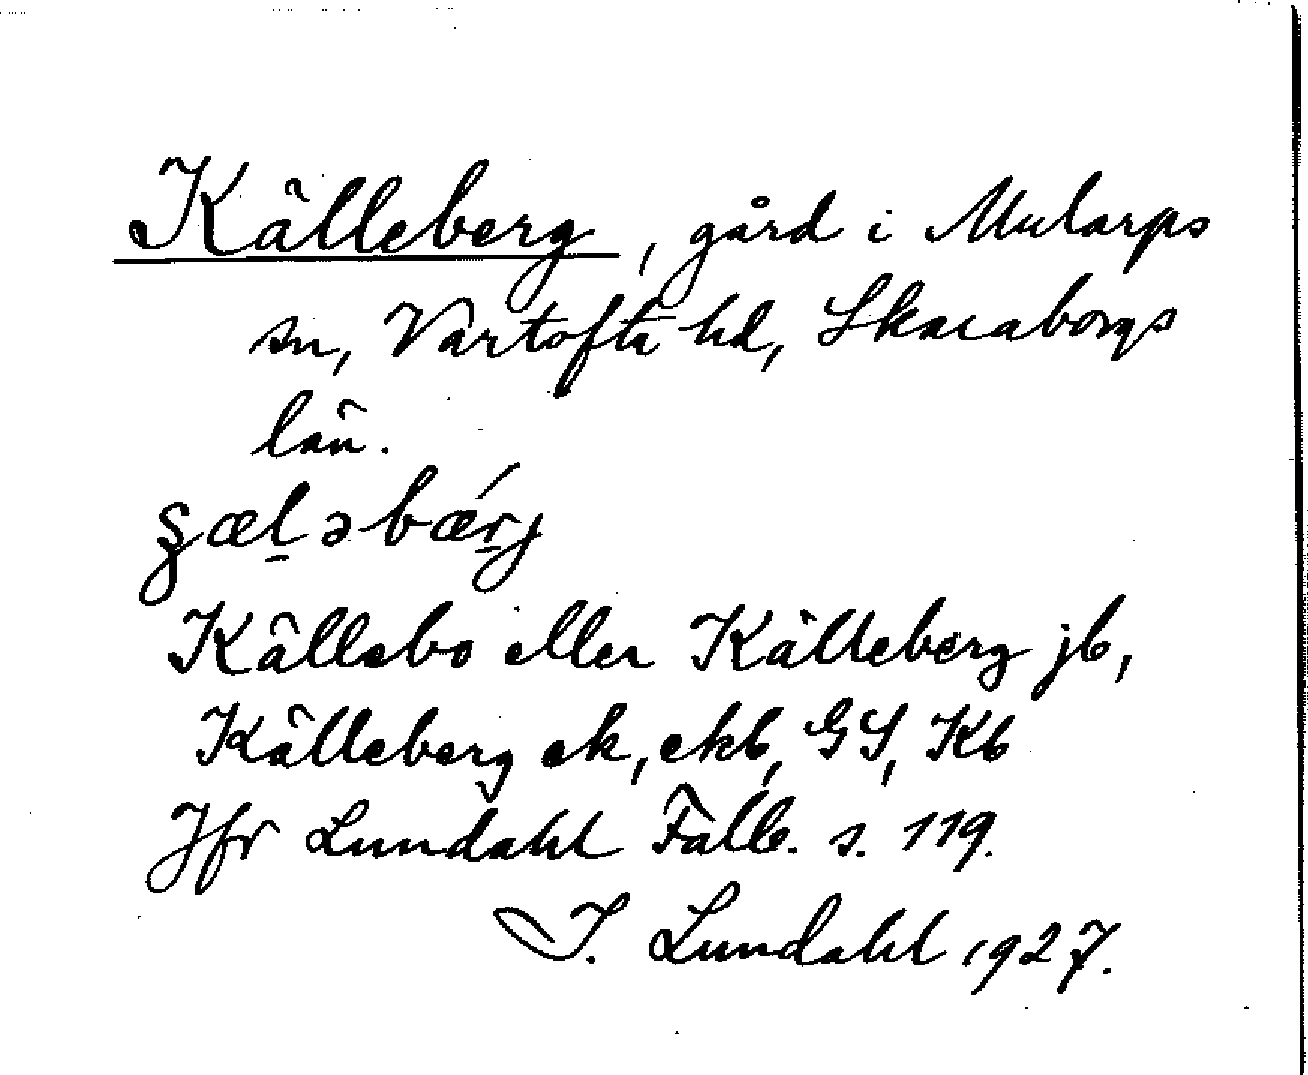 Källeberg, gård i Mularps
sn, Vartofta hd, Skaraborgs
län.
ʂæl̠əbæŕ̠j
Källebo eller Källeberg jb,
Källeberg ek, ekb, GS, Kb
Jfr Lundahl Falb. s. 119.
I. Lundahl 1927.